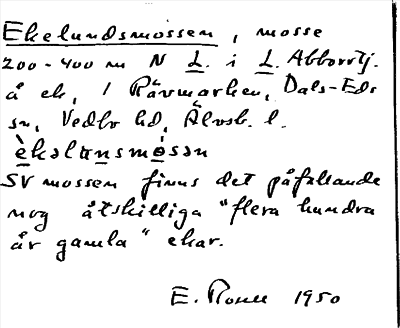 Ekelundsmossen, mosse
200-400 m N L. i L. Abborrtj.
å ek. 1 Rävmarken, Dals-Eds
sn, Vedbo hd, Älvsb. l.
èkəlɯnsmósən
SV mossen finns det påfallande
nog åtskilliga "flera hundra
år gamla" ekar.
E. 1950